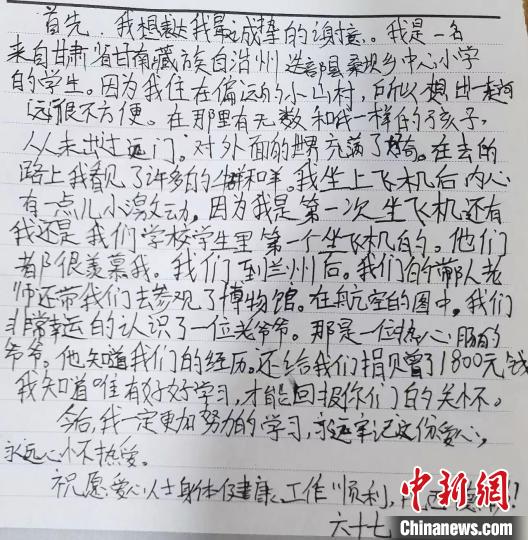 首先,我想表达我最诚挚的谢意。我是一名
来自甘肃省甘南藏族自治州迭部县桑坝乡中心小学
的学生。因为我住在偏远的小山村,所以想出一趟
远很不方便。在那里有无数和我一样的孩子,
从未出过远门。对外面的世界充满了好奇。在去的
路上我看见了许多的牛群和羊。我坐上飞机后内心
有一点儿小激动,因为我是第一次坐飞机还有
我还是我们学校学生里第一个坐飞机的。他们
都很羡慕我。我们到兰州后。我们的带队老
师还带我们去参观了博物馆。在航空的图中,我们
非常幸运的认识了一位老爷爷。那是一位热心肠的
爷爷。他知道我们的经历。还给我们捐赠了1800元钱
我知道唯有好好学习,才能回报你们的关怀。
今后,我一定更加努力的学习,永远牢记这份爱心,
永远心怀热爱。
祝愿爱心人士身体健康、工作顺利,
六十七
中新网
Chinanews.com